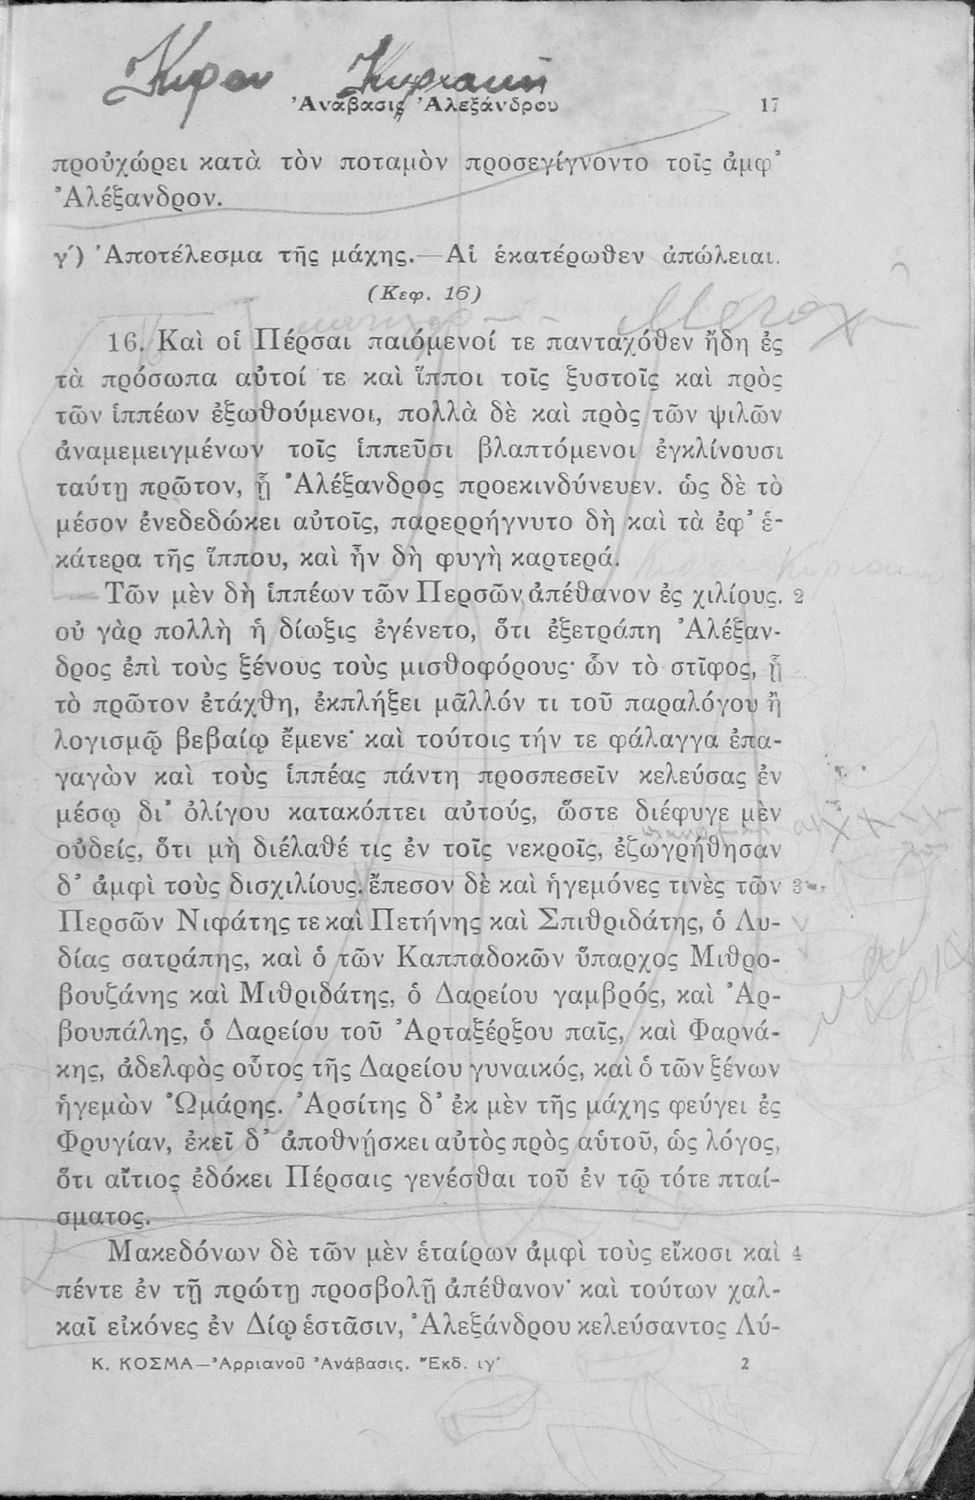 Κυρου Κυριακη
Ἀνάβασις Ἀλεξάνδρου 17
προὐχώρει κατὰ τὸν ποταμὸν προσεγίγνοντο τοῖς ἀμφ’
Ἀλέξανδρον.
γ’) Ἀποτέλεσμα τῆς μάχης.—Αἱ ἑκατέρωθεν ἀπώλειαι.
(Κεφ. 16)
Μετοχ
16. Καὶ οἱ Πέρσαι παιόμενοί τε πανταχόθεν ἤδη ἐς
τὰ πρόσωπα αὐτοί τε καὶ ἵπποι τοῖς ξυστοῖς καὶ πρὸς
τῶν ἱππέων ἐξωθούμενοι, πολλὰ δὲ καὶ πρὸς τῶν ψιλῶν
ἀναμεμειγμένων τοῖς ἱππεῦσι βλαπτόμενοι ἐγκλίνουσι
ταύτῃ πρῶτον, ᾗ Ἀλέξανδρος προεκινδύνευεν. ὡς δὲ τὸ
μέσον ἐνεδεδώκει αὐτοῖς, παρερρήγνυτο δὴ καὶ τὰ ἐφ’ ἑ-
κάτερα τῆς ἵππου, καὶ ἦν δὴ φυγὴ καρτερά.
Τῶν μὲν δὴ ἱππέων τῶν Περσῶν ἀπέθανον ἐς χιλίους. 2
οὐ γὰρ πολλὴ ἡ δίωξις ἐγένετο, ὅτι ἐξετράπη Ἀλέξαν-
δρος ἐπὶ τοὺς ξένους τοὺς μισθοφόρους· ὧν τὸ στῖφος, ᾗ
τὸ πρῶτον ἐτάχθη, ἐκπλήξει μᾶλλόν τι τοῦ παραλόγου ἢ
λογισμῷ βεβαίῳ ἔμενε· καὶ τούτοις τήν τε φάλαγγα ἐπα-
γαγὼν καὶ τοὺς ἱππέας πάντη προσπεσεῖν κελεύσας ἐν
μέσῳ δι’ ὀλίγου κατακόπτει αὐτούς, ὥστε διέφυγε μὲν
οὐδείς, ὅτι μὴ διέλαθέ τις ἐν τοῖς νεκροῖς, ἐζωγρήθησαν
δ’ ἀμφὶ τοὺς δισχιλίους. ἔπεσον δὲ καὶ ἡγεμόνες τινὲς τῶν 3
Περσῶν Νιφάτης τε καὶ Πετήνης καὶ Σπιθριδάτης, ὁ Λυ-
δίας σατράπης, καὶ ὁ τῶν Καππαδοκῶν ὕπαρχος Μιθρο-
βουζάνης καὶ Μιθριδάτης, ὁ Δαρείου γαμβρός, καὶ Ἀρ-
βουπάλης, ὁ Δαρείου τοῦ Ἀρταξέρξου παῖς, καὶ Φαρνά-
κης, ἀδελφὸς οὗτος τῆς Δαρείου γυναικός, καὶ ὁ τῶν ξένων
ἡγεμὼν Ὠμάρης. Ἀρσίτης δ’ ἐκ μὲν τῆς μάχης φεύγει ἐς
Φρυγίαν, ἐκεῖ δ’ ἀποθνῄσκει αὐτὸς πρὸς αὑτοῦ, ὡς λόγος,
ὅτι αἴτιος ἐδόκει Πέρσαις γενέσθαι τοῦ ἐν τῷ τότε πταί-
σματος.
Μακεδόνων δὲ τῶν μὲν ἑταίρων ἀμφὶ τοὺς εἴκοσι καὶ 4
πέντε ἐν τῇ πρώτῃ προσβολῇ ἀπέθανον· καὶ τούτων χαλ-
καῖ εἰκόνες ἐν Δίῳ ἑστᾶσιν, Ἀλεξάνδρου κελεύσαντος Λύ-
Κ. ΚΟΣΜΑ—Ἀρριανοῦ Ἀνάβασις. Ἔκδ. ιγ’ 2